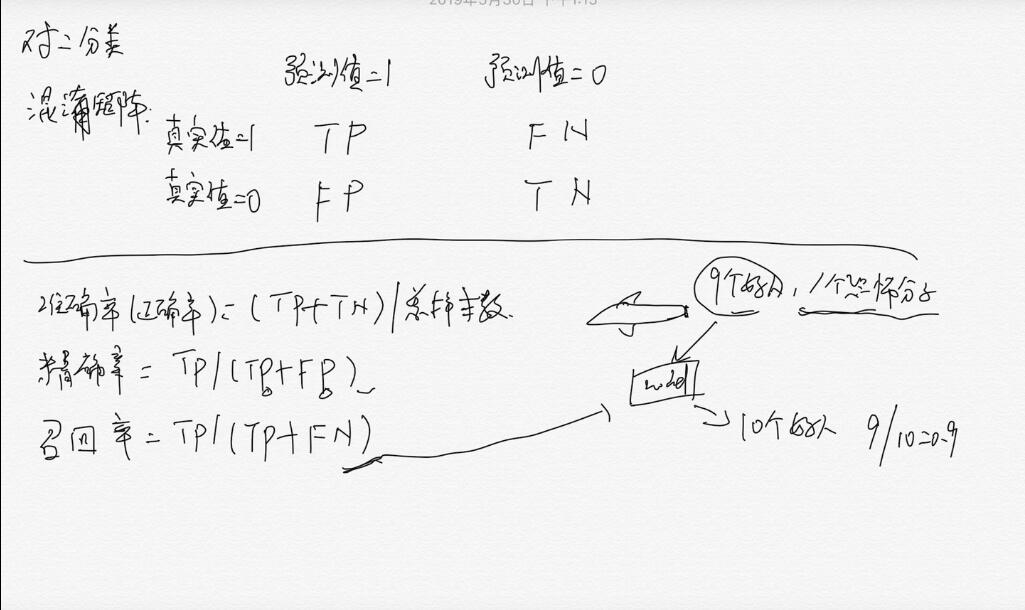 对二分类
混淆矩阵.
预测值=1 预测值=0
真实值=1 TP FN
真实值=0 FP TN
准确率(正确率)=(TP+TN)/总样本数.
精确率=TP/(TP+FP)
召回率=TP/(TP+FN)
9个好人,1个恐怖分子
model
10个好人 9/10=0.9